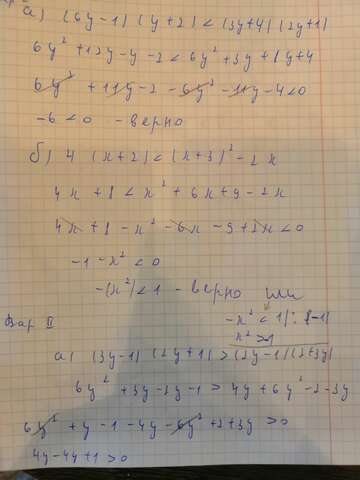 а) (6y-1) (y+2) < (3y+4) (2y+1)
6y² + 12y - y - 2 < 6y² + 3y + 8y + 4
6y² + 11y - 2 - 6y² - 11y - 4 < 0
-6 < 0 - верно
б) 4 (x+2) < (x+3)² - 2x
4x + 8 < x² + 6x + 9 - 2x
4x + 8 - x² - 6x - 9 + 2x < 0
-1 - x² < 0
-(x²) < 1 - верно или
-x² < 1 | : (-1)
x² > -1
Вар II
а) (3y-1) (2y+1) > (2y-1) (2+3y)
6y² + 3y - 2y - 1 > 4y + 6y² - 2 - 3y
6y² + y - 1 - 4y - 6y² + 2 + 3y > 0
4y - 4y + 1 > 0